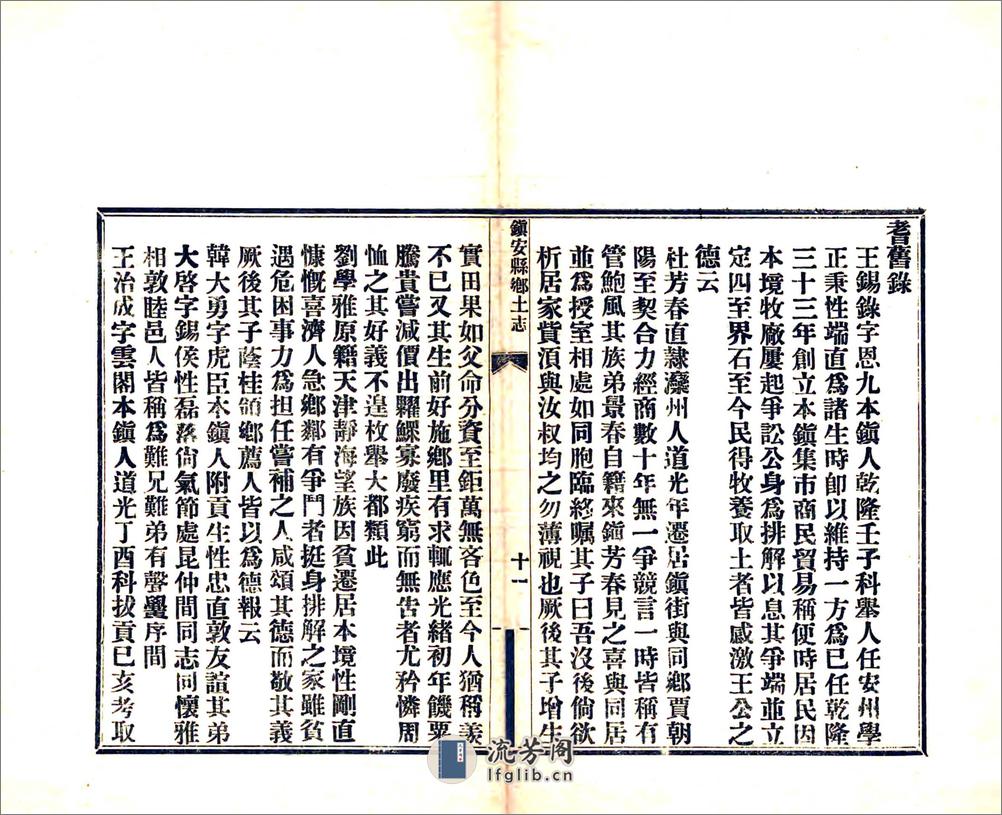 耆舊錄
王錫錄字恩九本鎮人乾隆壬子科舉人任安州學
正秉性端直爲諸生時卽以維持一方爲己任乾隆
三十三年創立本鎮集市商民貿易稱便時居民因
本境牧廠屢起爭訟公身爲排解以息其爭端並立
定四至界石至今民得牧養取土者皆感激王公之
德云
杜芳春直隸灤州人道光年遷居鎮街與同鄉賈朝
陽至契合力經商數十年無一爭競言一時皆稱有
管鮑風其族弟景春自籍來鎮芳春見之喜與同居
並爲授室相處如同胞臨終囑其子曰吾沒後倘欲
析居家貲須與汝叔均之勿薄視也厥後其子增生
鎭安縣鄉土志
十一
實田果如父命分資至鉅萬無吝色至今人猶稱羨
不已又其生前好施鄉里有求輒應光緒初年饑粟
騰貴嘗減價出糶鰥寡廢疾窮而無告者尤矜憐周
恤之其好義不遑枚舉大都類此
劉學雅原籍天津靜海望族因貧遷居本境性剛直
慷慨喜濟人急鄉鄰有爭鬥者挺身排解之家雖貧
遇危困事力爲担任嘗補之人咸頌其德而敬其義
厥後其子蔭桂領鄉薦人皆以爲德報云
韓大勇字虎臣本鎮人附貢生性忠直敦友誼其弟
大啓字錫侯性磊落尙氣節處昆仲間同志同懷雅
相敦睦邑人皆稱爲難兄難弟有聲黌序間
王治成字雲閣本鎮人道光丁酉科拔貢己亥考取
流芳阁
lfglib.cn